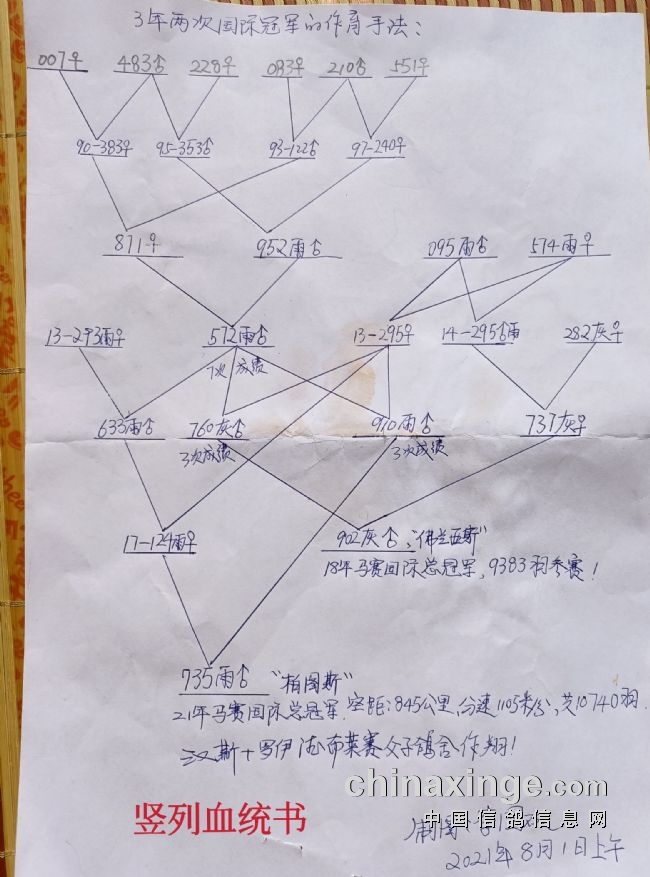 3年两次国际冠军的作育手法：
007♀ 483♂ 228♀ 083♀ 210♂ 551♀
90-383♀ 95-353♂ 93-122♂ 97-240♀
871♀ 952雨♂ 095雨♂ 574雨♀
13-293雨♀ 572雨♂ 13-295♀ 14-295♂雨 282灰♀
7次 成绩
633雨♂ 760灰♂ 910雨♂ 737灰♀
3次成绩 3次成绩
17-124雨♀ 902灰♂,"佛兰西斯"
18年马赛国际总冠军，9383羽参赛！
735雨♂ "柏图斯"
21年马赛国际总冠军.空距:845公里,分速1105米/分,共10740羽.
汉斯+罗伊 法布莱赛父子鸽舍作翔！
竖列血统书
chinaxinge.com
中国信鸽信息网
2021年8月1日上午